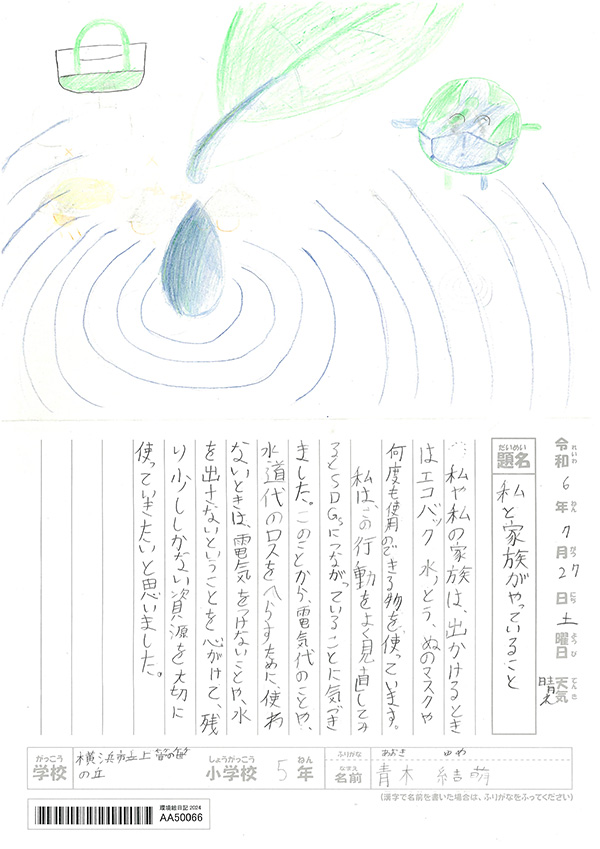 令和6年7月27日土曜日 天気 晴れ
れいわ ねん がつ にち ようび てんき
だいめい
題名 私と家族がやっていること
私や私の家族は、出かけるとき
はエコバック、水とう、ぬのマスクや
何度も使用のできる物を使っています。
私は、この行動をよく見直してみ
るとSDGsにつながっていることに気づき
ました。このことから、電気代のことや、
水道代のロスをへらすために、使わ
ないときは、電気をつけないことや、水
を出さないということを心がけて、残
り少ししかない資源を大切に
使っていきたいと思いました。
がっこう しょうがっこう ねん
学校 横浜市立上菅田笹の丘 小学校 5年
ふりがな あおき ゆめ
なまえ
名前 青木 結萌
(漢字で名前を書いた場合は、ふりがなをふってください)
環境絵日記 2024
AA50066